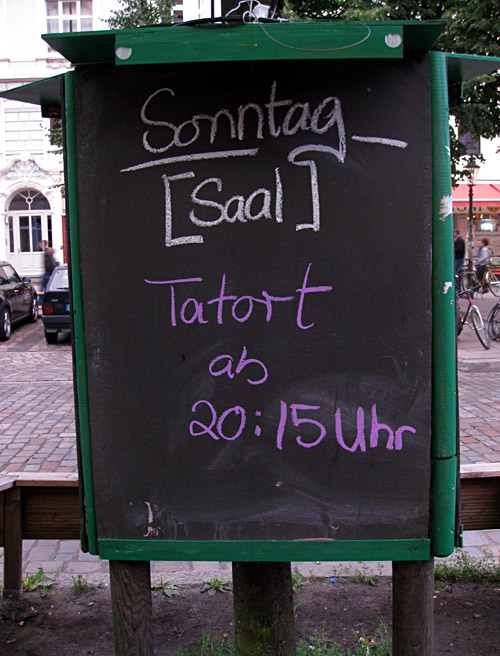 Sonntag
[Saal]
Tatort
ab
20:15 Uhr